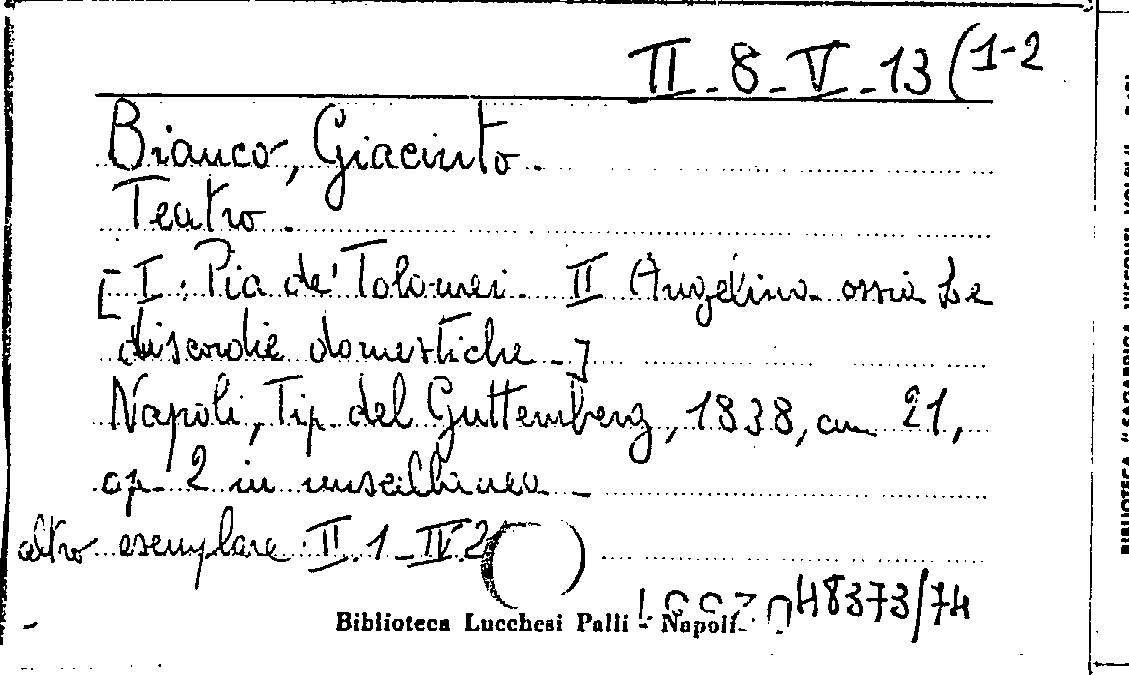 II-8-V-13(1-2
Bianco, Giacinto.
Teatro.
[I. Pia de' Tolomei. II Angelina ossia Le
discordie domestiche-]
Napoli, Tip. del Guttemberg, 1838, cm 21,
op. 2 in miscellanea-
altro esemplare II.1-IV.2( )
48373/74
Biblioteca Lucchesi Palli - Napoli